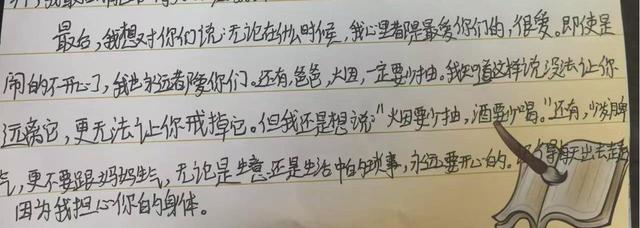 最后,我想对你们说:无论在什么时候,我心里都是最爱你们的,很爱。即使是
闹的不开心了,我也永远都爱你们。还有,爸爸,火因,一定要少抽。我知道这样说没法让你
远离它,更无法让你戒掉它。但我还是想说:"火因要少抽,酒要少喝。"还有,少发脾
气,更不要跟妈妈生气,无论是生意还是生活中的琐事,永远要开心的。天出去
因为我担心你的身体。